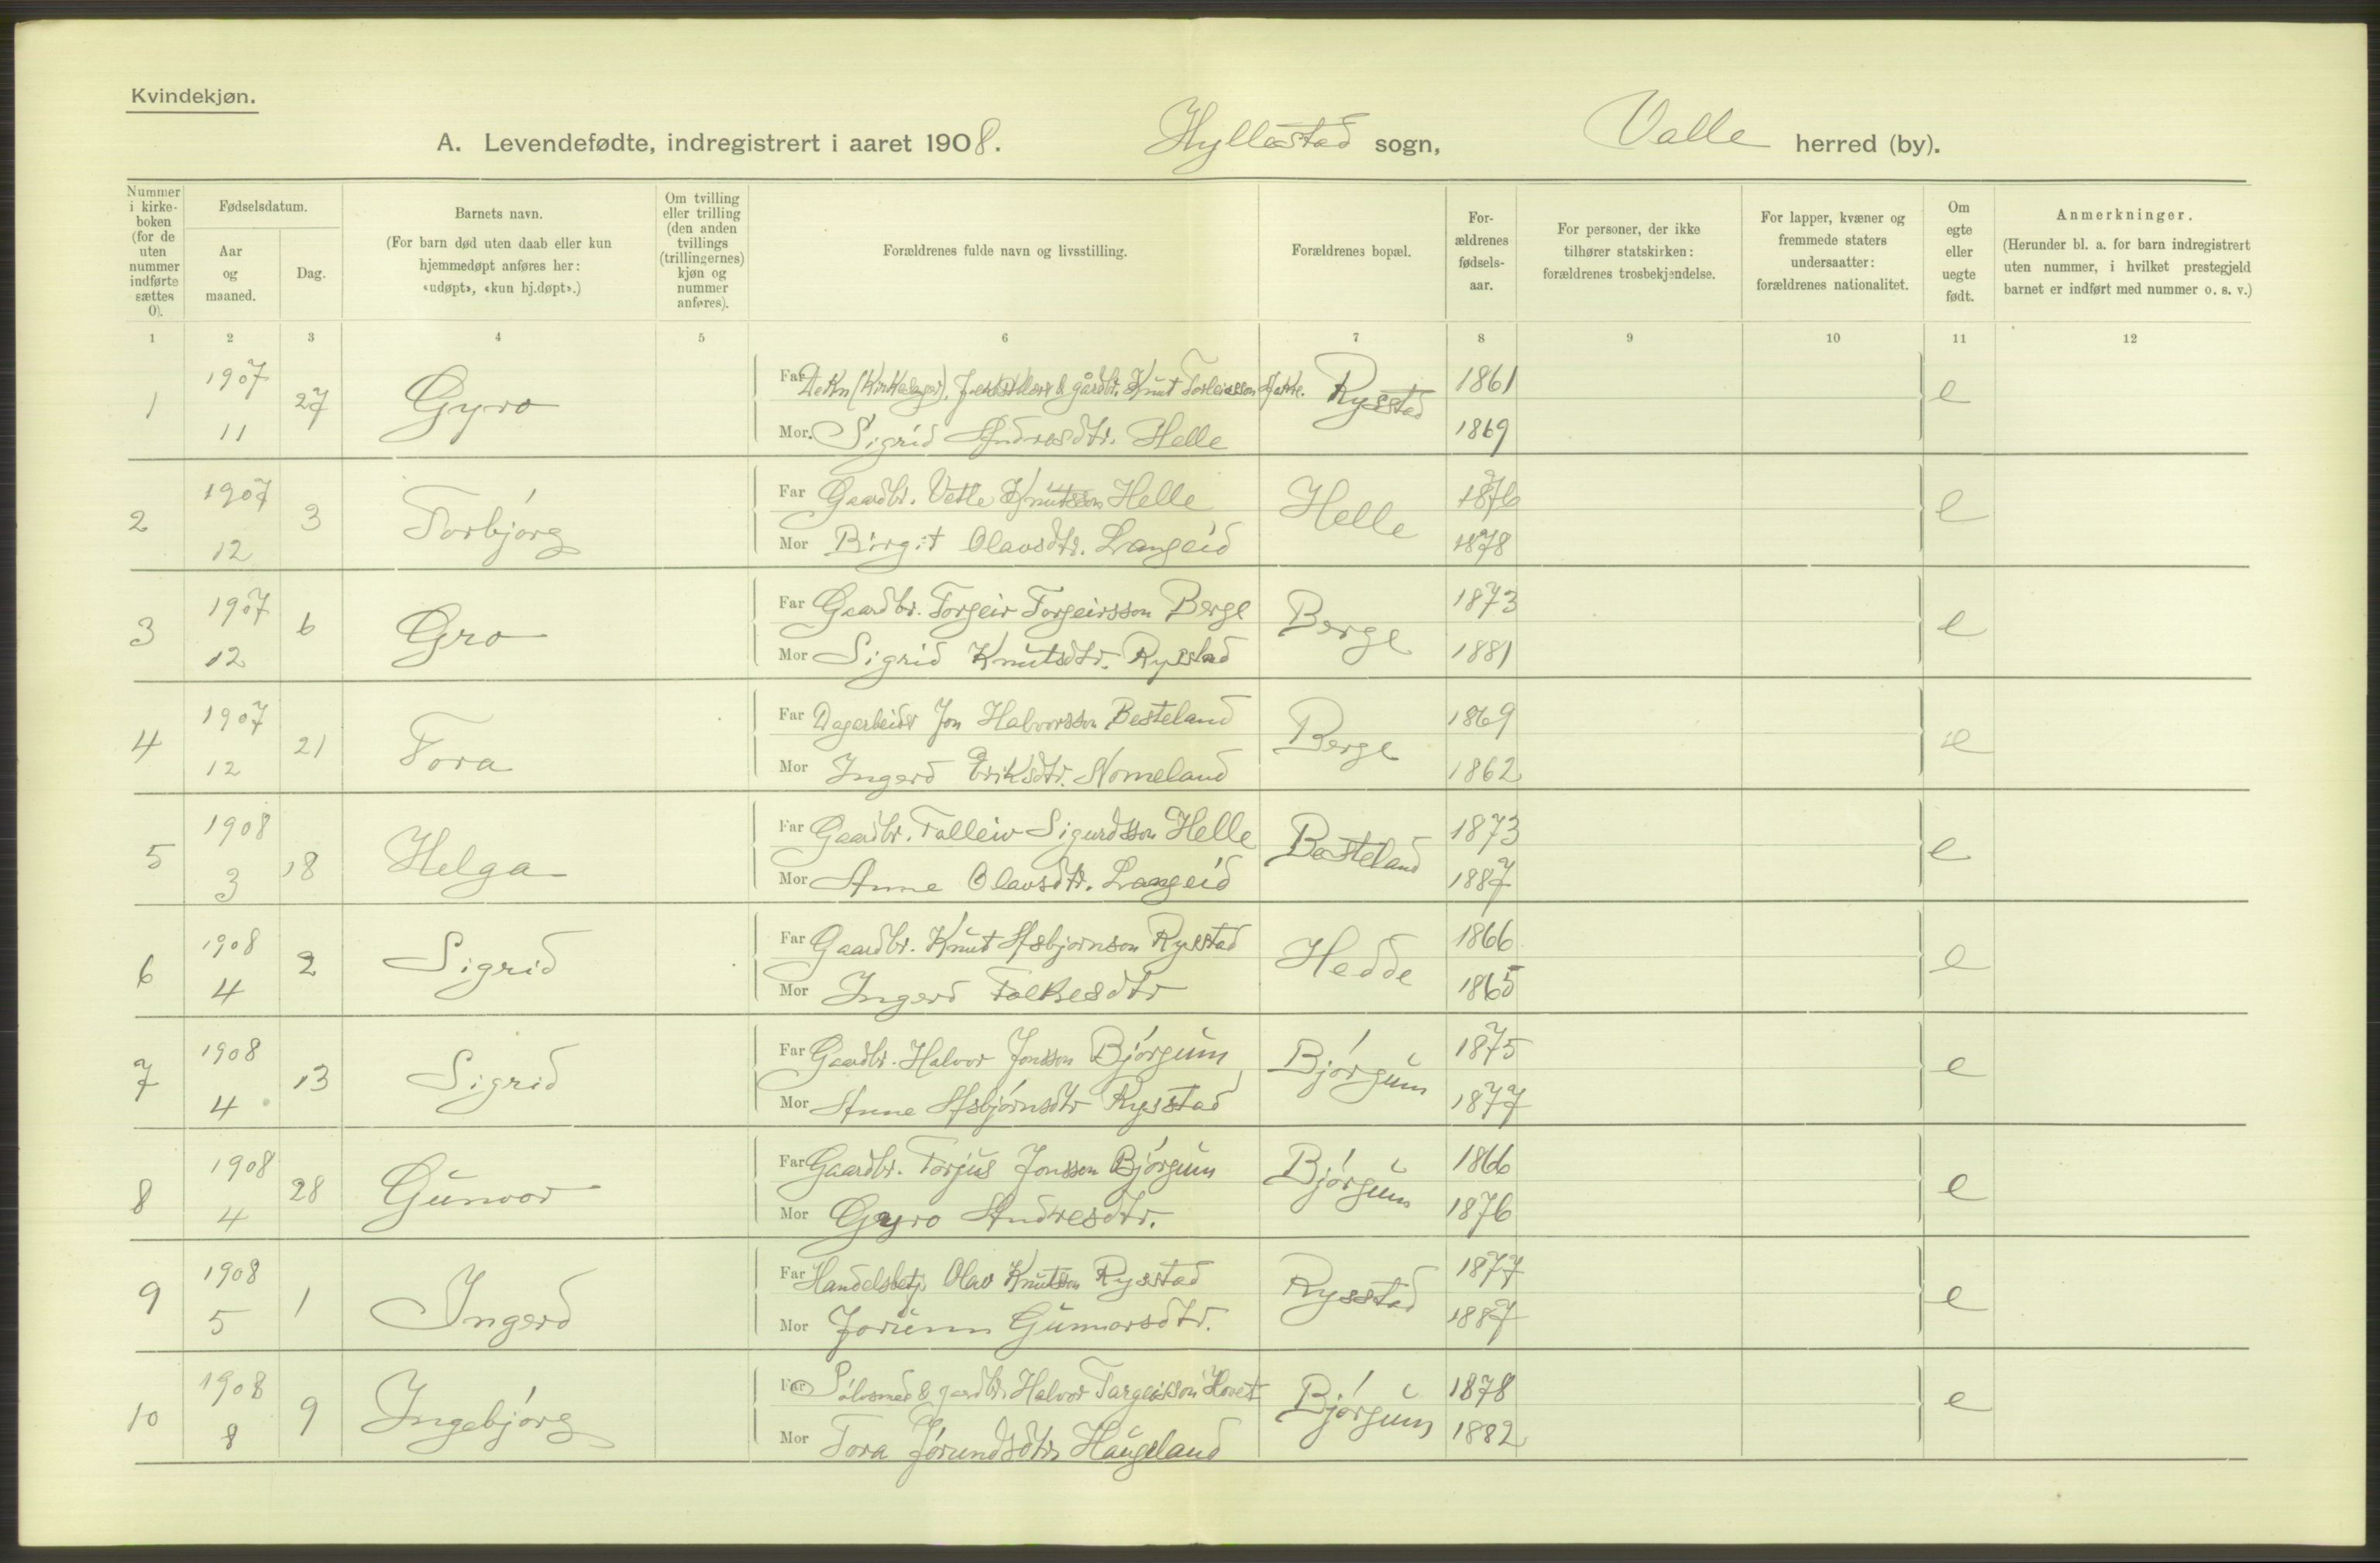 Kvindekjøn.
A. Levendefødte, indregistrert i aaret 1908. Hyllestad sogn, Valle herred (by).
Nummer i kirke-boken (for de uten nummer indførte sættes 0).
Fødselsdatum.
Aar og maaned.
Dag.
Barnets navn.
(For barn død uten daab eller kun hjemmedøpt anføres her: «udøpt», «kun hj.døpt».)
Om tvilling eller trilling (den anden tvillings (trillingernes) kjøn og nummer anføres).
Forældrenes fulde navn og livsstilling.
Forældrenes bopæl.
For-ældrenes fødsels-aar.
For personer, der ikke tilhører statskirken: forældrenes trosbekjendelse.
For lapper, kvæner og fremmede staters undersaatter: forældrenes nationalitet.
Om egte eller uegte født.
Anmerkninger.
(Herunder bl. a. for barn indregistrert uten nummer, i hvilket prestegjeld barnet er indført med nummer o. s. v.)
1 2 3 4 5 6 7 8 9 10 11 12
1 1907 11 27 Gyro Far (Kirkesanger), & gårdbr. Knut Rysstad 1861 e
Mor. Sigrid Andresdtr. Helle 1869
2 1907 12 3 Torbjórg Far Gaardbr. Vetle Knutsson Helle Helle 1876 e
Mor Birgit Olavsdtr. Langeid 1878
3 1907 12 6 Gro Far Gaardbr. Torgeir Torgeirsson Berge Berge 1873 e
Mor Sigrid Knutsdtr. Rysstad 1881
4 1907 12 21 Tora Far Dagarbeider Jon Halvorsson Besteland Berge 1869 e
Mor Ingerd Eriksdtr. Nomeland 1862
5 1908 3 18 Helga Far Gaardbr. Talleiv Sigurdsson Helle Besteland 1873 e
Mor Anne Olavsdtr. Langeid 1887
6 1908 4 2 Sigrid Far Gaardbr. Knut Asbjornson Rysstad Hedde 1866 e
Mor Ingerd Folkesdtr 1865
7 1908 4 13 Sigrid Far Gaardbr. Halvor Jonsson Bjórgum Bjórgum 1875 e
Mor Anne Asbjórnsdtr Rysstad 1877
8 1908 4 28 Gunvor Far Gaardbr. Torjus Jonsson Bjórgum Bjórgum 1866 e
Mor Gyro Andresdtr. 1876
9 1908 5 1 Ingerd Far Handelsbetj. Olav Knutson Rysstad Rysstad 1877 e
Mor Jorunn Gunnarsdtr. 1887
10 1908 8 9 Ingebjórg Far Sólvsmed & gardbr. Halvor Targeirsson Hovet Bjórgum 1878 e
Mor Tora Jórundsdtr Haugeland 1882